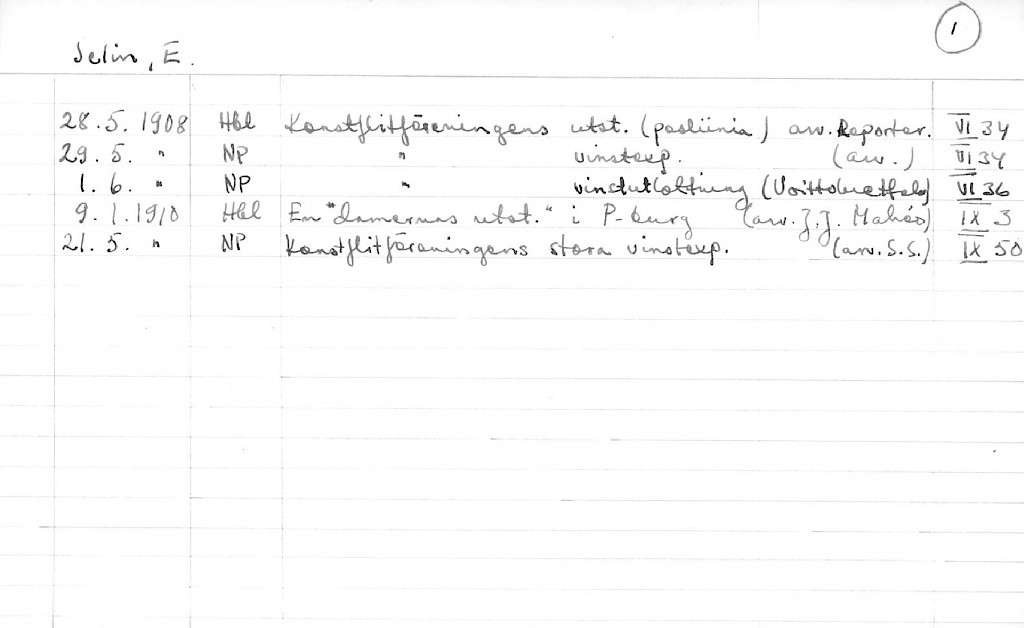 1
Selin, E.
28.5. 1908 Hbl Konstflitföreningens utst. (posliinia) arv. Reporter. VI 34
29.5. " NP " vinstexp. (arv.) VI 34
1.6. " NP " vinstutlottning (Voittoluettelo) VI 36
9.1.1910 Hbl En "Damernas utst." i P-burg (arv. J.J. ) IX 3
21.5. " NP Konstflitföreningens stora vinstexp. (arv. S.S.) IX 50